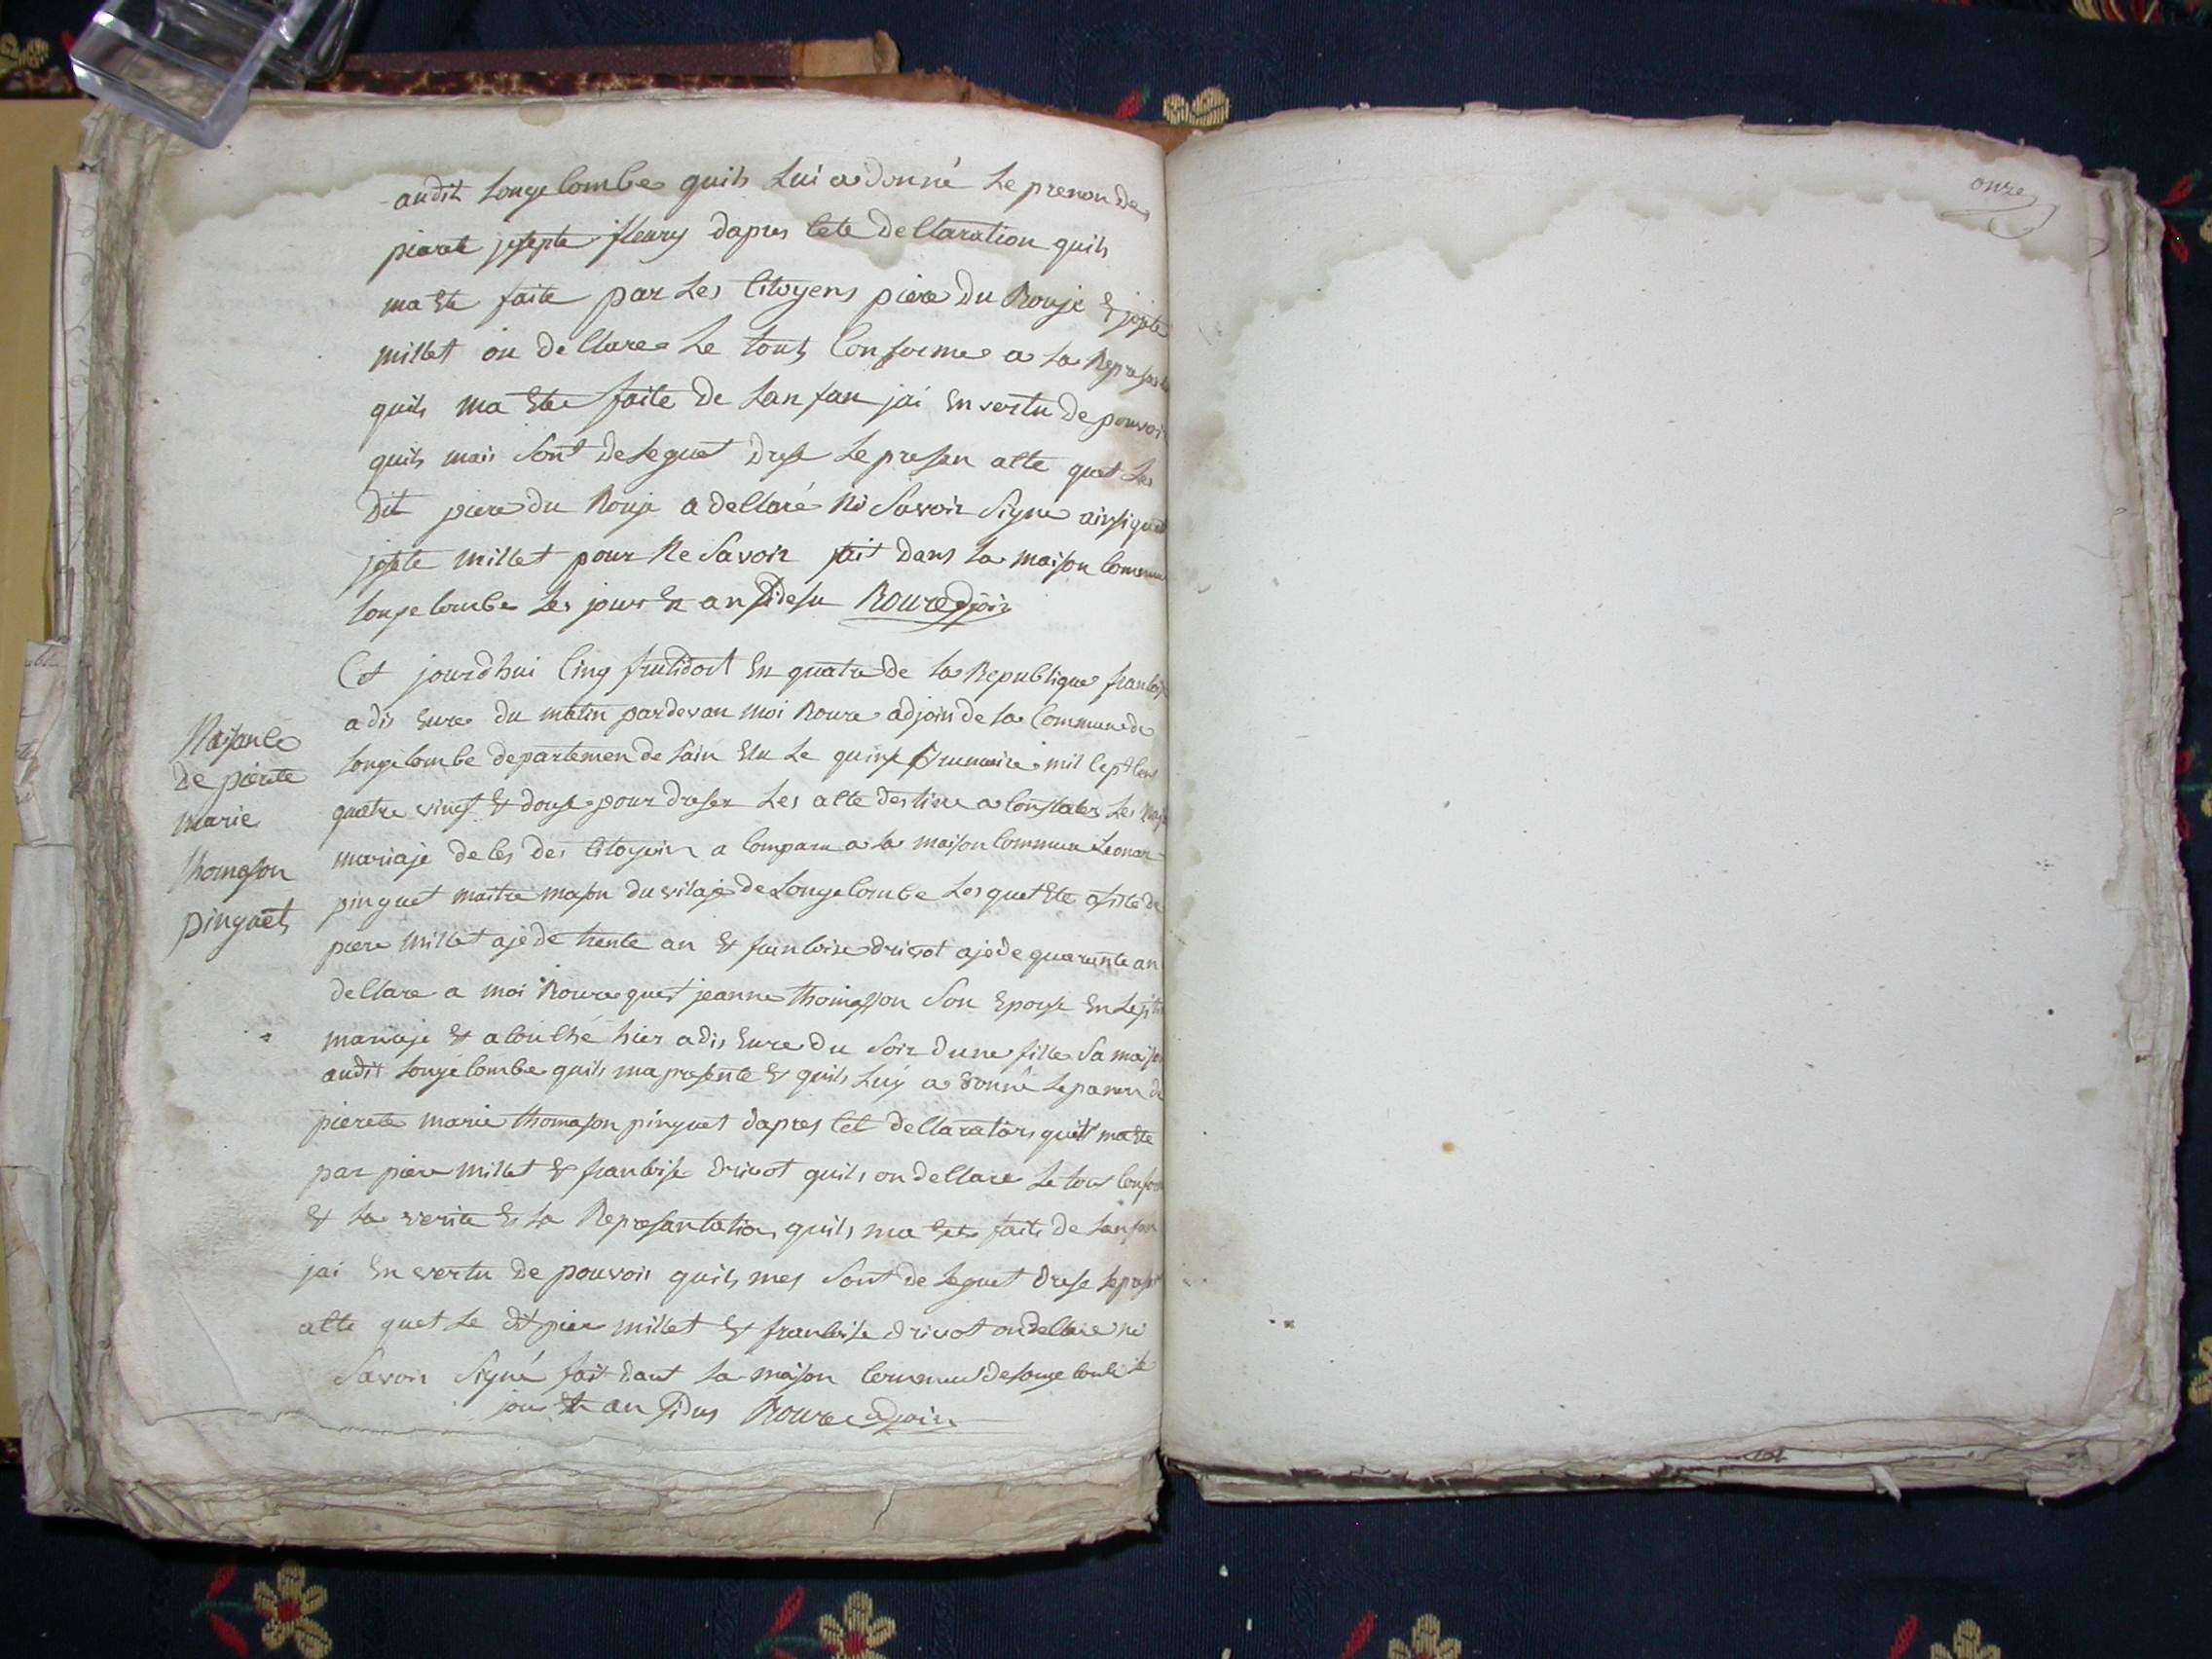 audit longecombe quils lui a donné le prenon des
pierete josepte fleury dapres cete declaration quils
ma ete faite par les citoyens piere du Rouje & josepte
millet on declare le touts conforme a la
quils ma ete faite de lanfan jai en vertu de pouvoir
quils mais sont deleguet drese le presan acte quet les
dit piere du Rouje a declaré ni savoir signe ainsi quet
josepte millet pour ne savoir fait dans la maison comune
longecombe les jours et an sidesu Roure adjoin
Cet jourdhui cinq frutidort en quatre de la Republique francoise
a dis eure du matin pardevan moi Roure adjoin de la commune de
longecombe departemen de lain elu le quinse brumaire mil sept cent
quatre vingt & douse pour dreser les acte destine a constater les
mariaje deces des citoyein a comparu a la maison commun Leonar
pinguet maitre mason du vilaje de longecombe les quet ete asiste de
piere millet aje de trente an & francoise drivot aje de quarante an
declare a moi Roure quet jeanne thomasson son epouse en
mariaje et a couche hier a dis eure du soir dune fille sa maison
audit longecombe quils ma presente & quils luy a donné le panon de
pierete marie thomason pinguet dapres cet declarations quit ma ete
par piere millet & francoise drivot quils on declare le tous
& la verite & la Represantation quils ma ete faite de lanfan
jai en vertu de pouvoir quils mes sont deleguet drese le
acte quet le dit piere millet & francoise drivot on declare ni
savoir signé fait dant la maison commune de longecombe le
jour et an sidus Roure adjoin
Naisance
de pierete
marie
thomason
pinguet
onze